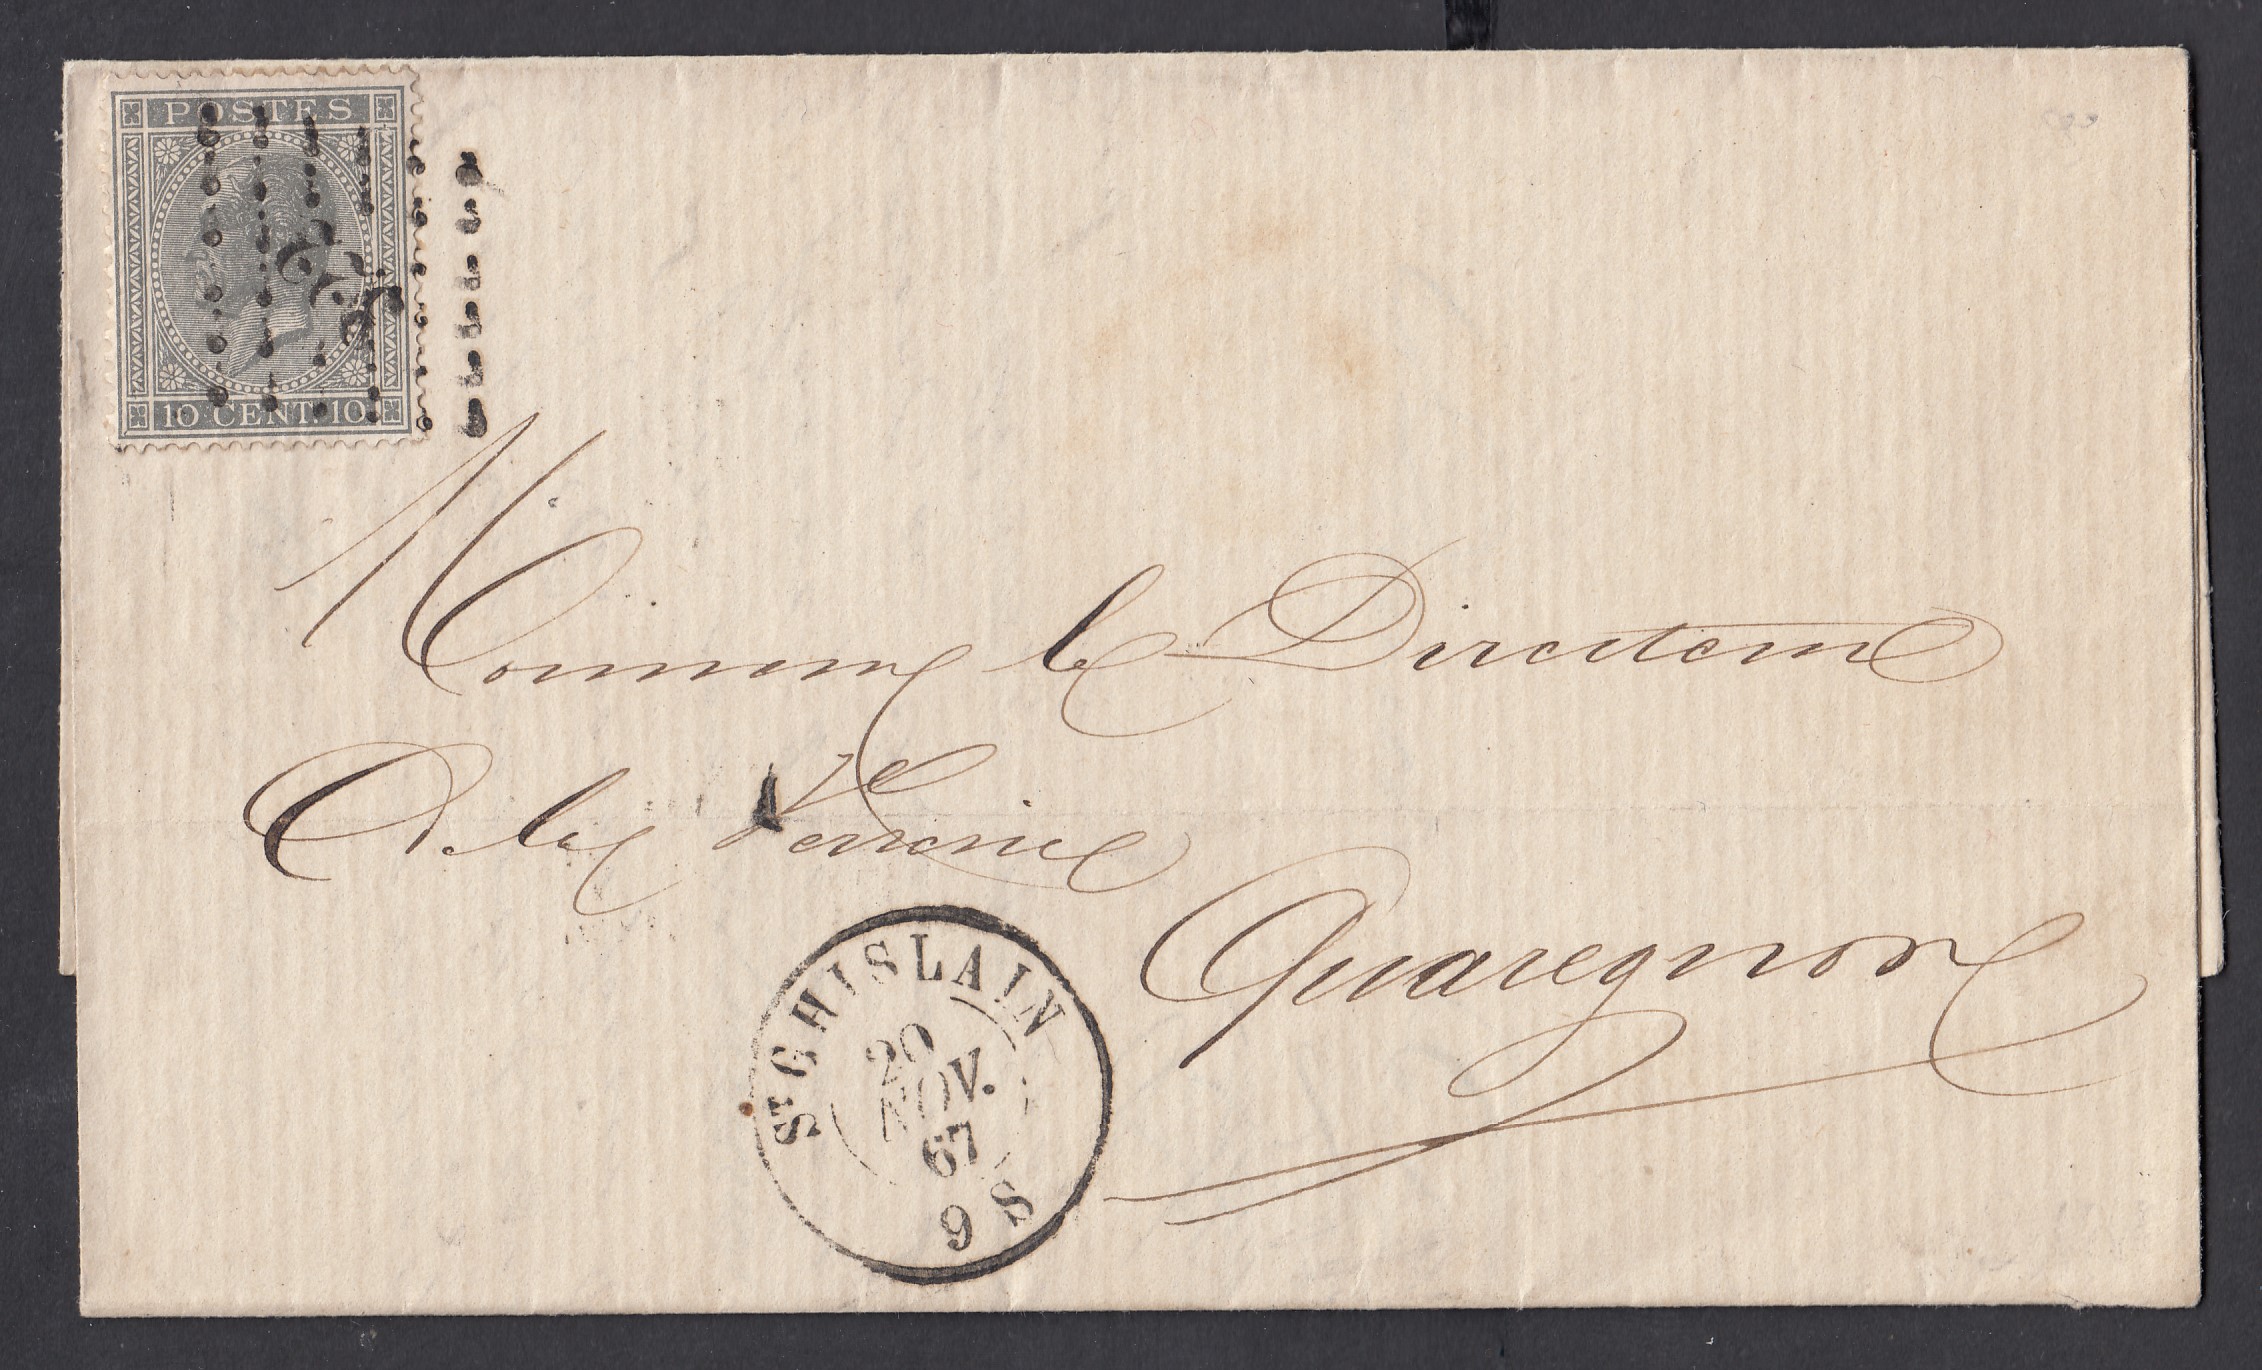 POSTES
10 CENT. 10
Monsieur le Directeur
De la Verrerie
Quaregnon
ST GHISLAIN
20
NOV.
67
9 S